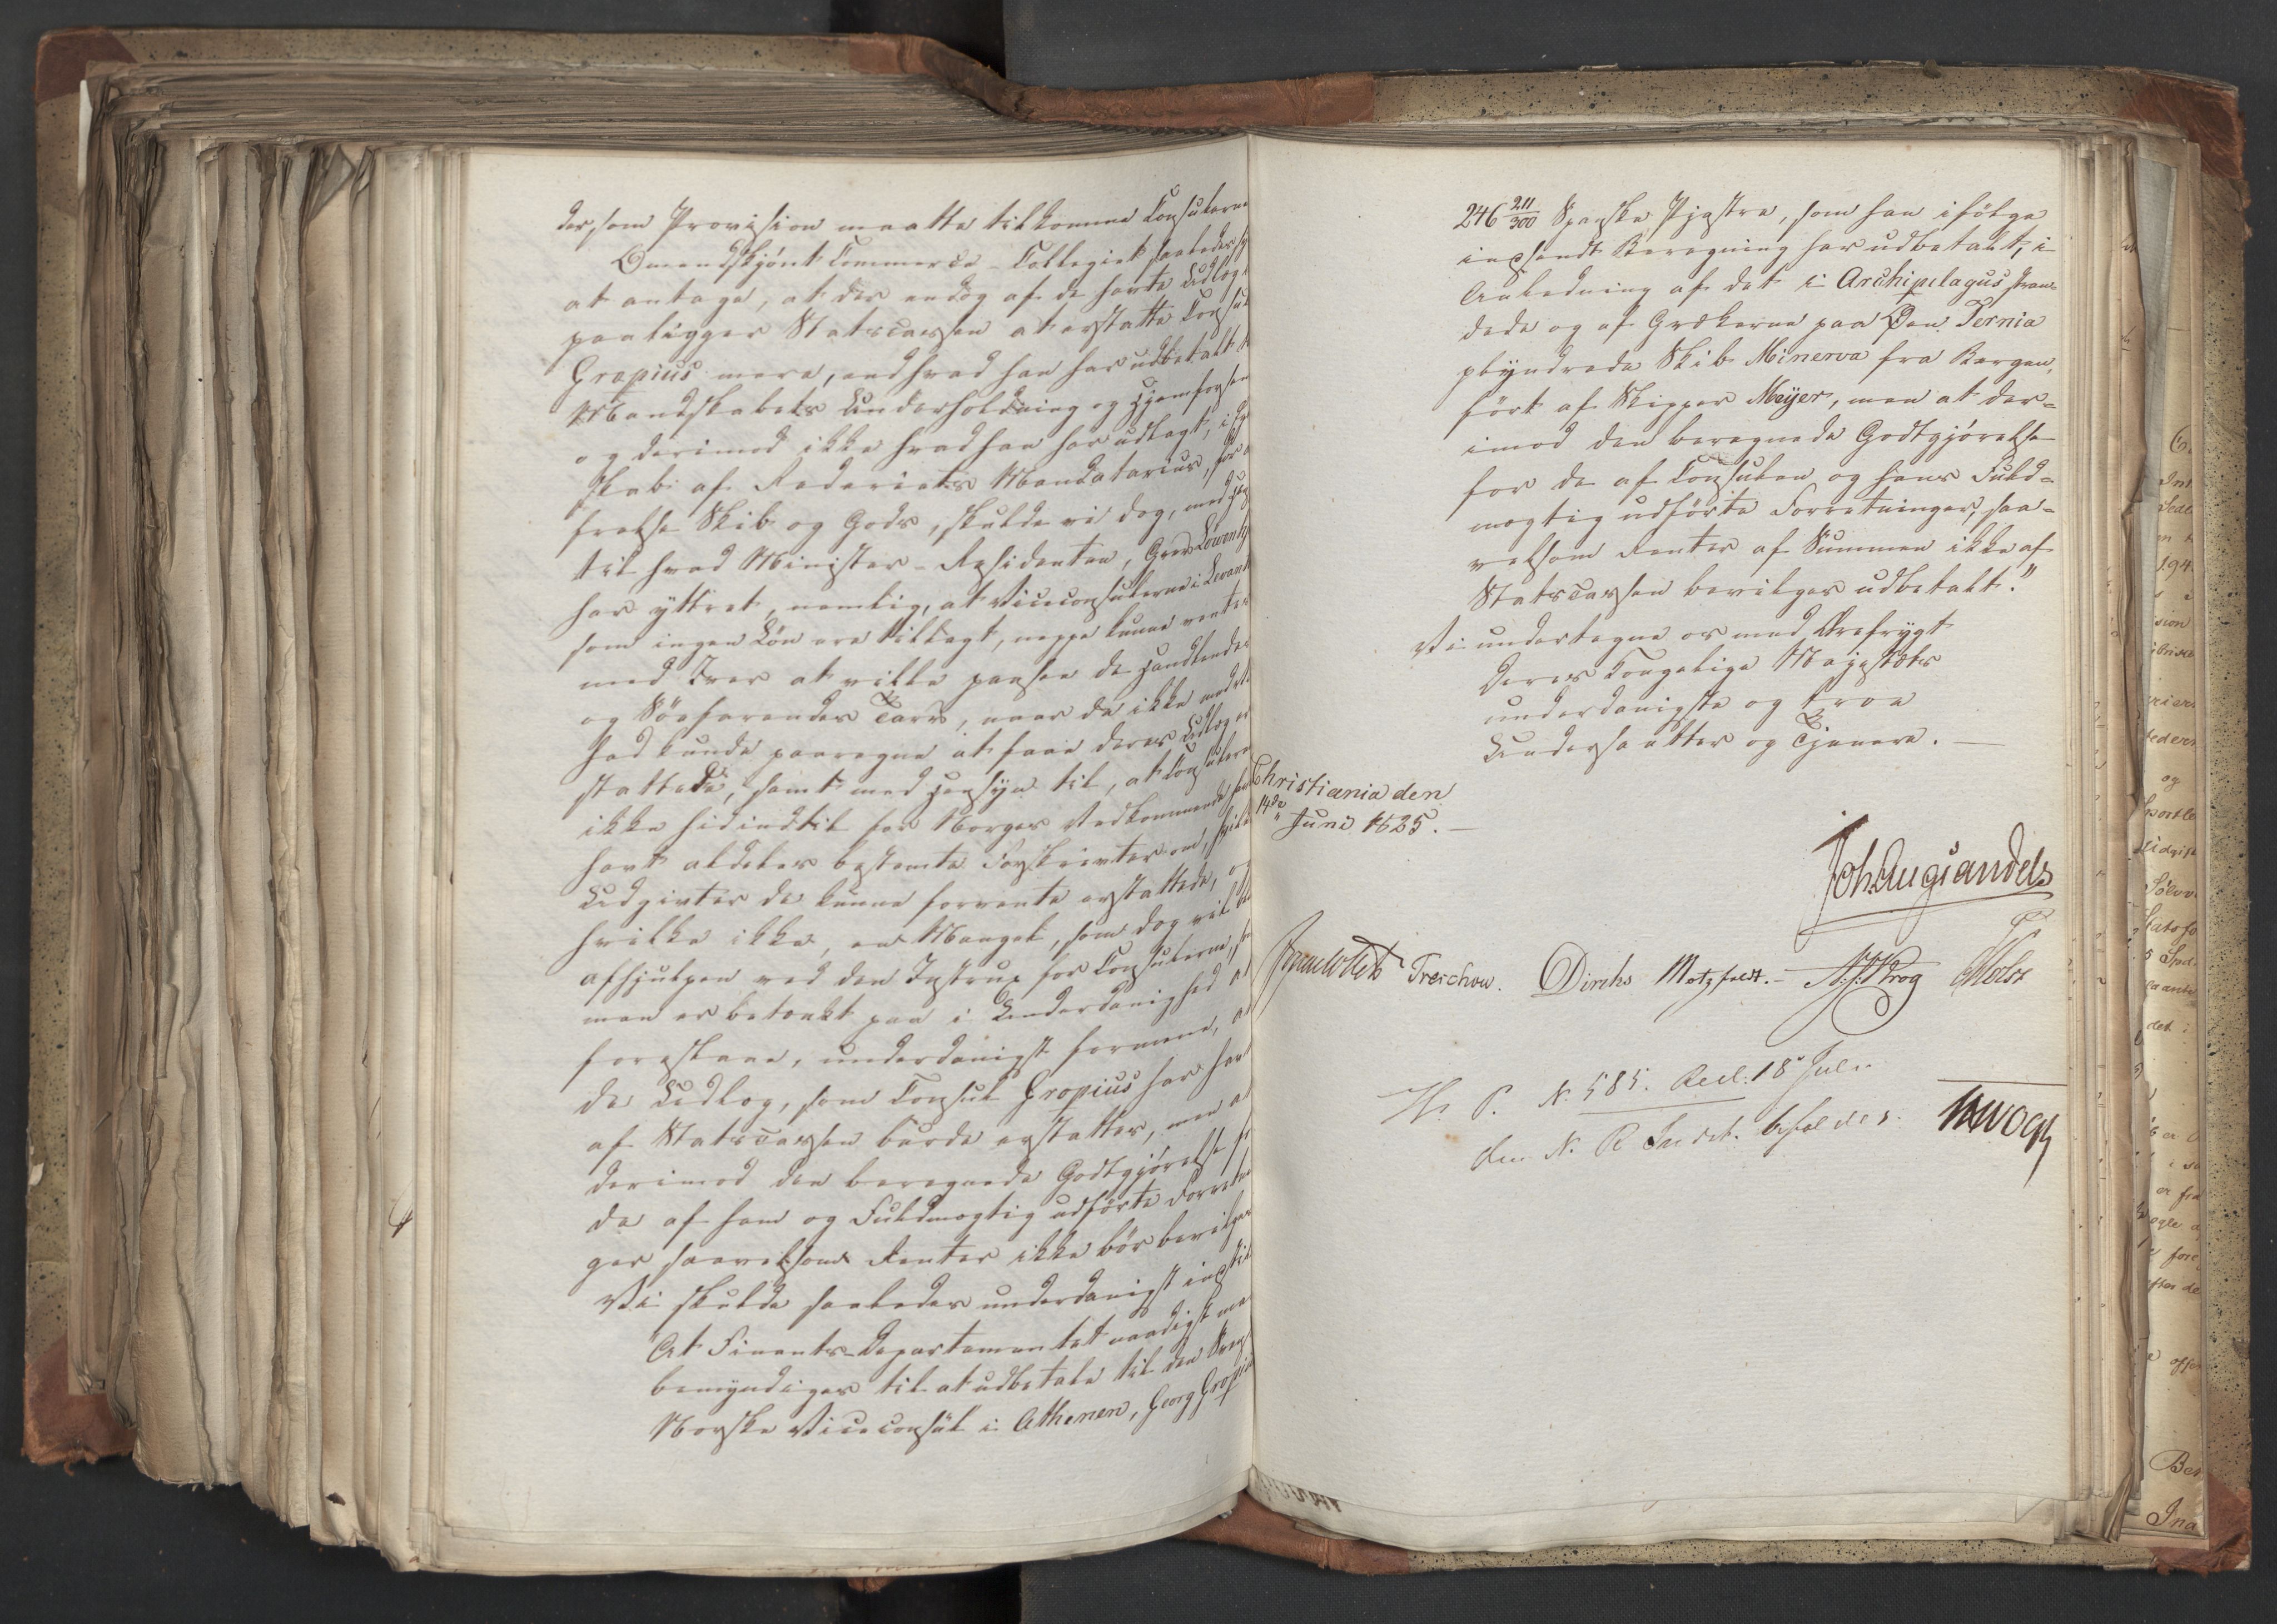 der, som Provision maatte tilkomme Consulerne
Omendskjönt Commerce-Collegiet saaledes
at antage, at der endog af de havte Udlæg
paaligger Statscassen at erstatte Consul
Gropius mere, end hvad han har udbetalt t
Mandskabets Underholdning og Hjemsen
og derimod ikke hvad han har udlagt, i Eg
skab af Rederiets Mandatarius, for a
frelse Skib og Gods, skulde vi dog, med Hen
til hvad Minister-Residenten, Grev Löwenhj
har yttret, nemlig, at Viceconsulerne i Levant
som ingen Lön ere tillagt, neppe kunne vente
med Iver at ville paasee de Handlendes
og Söefarendes Tarv, naar de ikke med
hed kunde paaregne at faae deres Udlæg er
stattede, samt med Hensyn til, at Consulern
ikke hidindtil for Norges Vedkommende ha
havt aldeles bestemte Forskrivter om, hvilke
Udgivter de kunne forvente erstattede, og
hvilke ikke, en Mangel, som dog vil bli
afhjulpen ved den Instrux for Consulerne, so
man er betænkt paa i Underdanighed at
foreslaae, underdanigst formene, at
de Udlæg, som Consul Gropius har havt
af Statscassen burde erstattes, men at
derimod den beregnede Godtgjörelse for
de af ham og Fuldmægtig udförte Forretnin
ger saavelsom Renter ikke bör bevilges
Vi skulde saaledes underdanigst indstil
"At Finants-Departementet naadigst ma
bemyndiges til at udbetale til den Svensk
Norske Viceconsul i Athenen, Georg Gropius
246 211/300 Spanske Pjastre, som han ifölge
indsendt Beregning har udbetalt, i
Anledning af det i Archipelagus stran-
dede og af Grækerne paa Öen Ternia
plyndrede Skib Minerva fra Bergen,
fört af Skipper Meÿer, men at der-
imod den beregnede Godtgjörelse
for de af Consulen og hans Fuld-
mægtig udförte Forretninger, saa-
velsom Renter af Summen ikke af
Statscassen bevilges udbetalt."
Vi undertegne os med Ærefrygt
Deres Kongelige Majestæts
underdanigste og troe
Undersaatter og Tjenere.
Christiania den
14de Juni 1825.
Joh. Aug. Sandels
Treschow. Diriks Motzfeldt. N. J. Krog
H. P. N. 585. Reel: 18 Juli
den N. R. Indst. bifaldes.